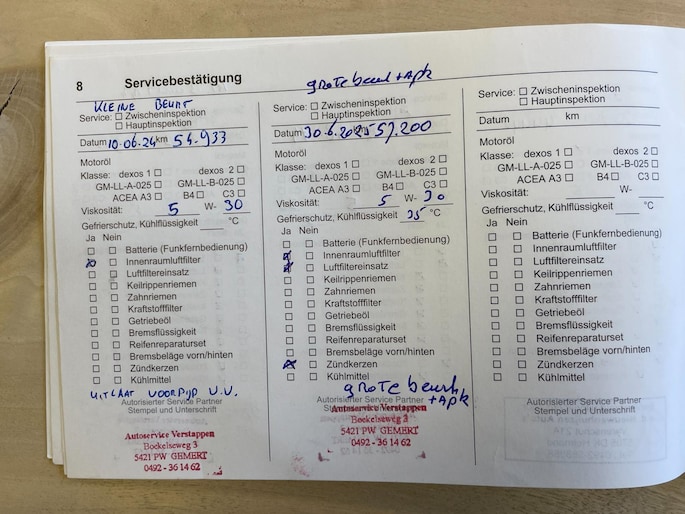 8 Servicebestätigung
KLEINE BEURT
Service: Zwischeninspektion
Hauptinspektion
Datum 10-06.24 km 54.933
Motoröl
Klasse: dexos 1 dexos 2
GM-LL-A-025 GM-LL-B-025
ACEA A3 B4 C3
Viskosität: 5 W- 30
Gefrierschutz, Kühlflüssigkeit °C
Ja Nein
Batterie (Funkfernbedienung)
Innenraumluftfilter
Luftfiltereinsatz
Keilrippenriemen
Zahnriemen
Kraftstofffilter
Getriebeöl
Bremsflüssigkeit
Reifenreparaturset
Bremsbeläge vorn/hinten
Zündkerzen
Kühlmittel
UITLAAT VOORPIJP V.V.
Autorisierter Service Partner
Stempel und Unterschrift
Autoservice Verstappen
Bockelseweg 3
5421 PW GEMERT
0492 - 36 14 62
grote beurt + apk
Service: Zwischeninspektion
Hauptinspektion
Datum 30-6.2025 km 57.200
Motoröl
Klasse: dexos 1 dexos 2
GM-LL-A-025 GM-LL-B-025
ACEA A3 B4 C3
Viskosität: 5 W- 30
Gefrierschutz, Kühlflüssigkeit 35 °C
Ja Nein
Batterie (Funkfernbedienung)
Innenraumluftfilter
Luftfiltereinsatz
Keilrippenriemen
Zahnriemen
Kraftstofffilter
Getriebeöl
Bremsflüssigkeit
Reifenreparaturset
Bremsbeläge vorn/hinten
Zündkerzen
Kühlmittel
grote beurt
+ apk
Autorisierter Service Partner
Stempel und Unterschrift
Autoservice Verstappen
Bockelseweg 3
5421 PW GEMERT
0492 - 36 14 62
Service: Zwischeninspektion
Hauptinspektion
Datum km
Motoröl
Klasse: dexos 1 dexos 2
GM-LL-A-025 GM-LL-B-025
ACEA A3 B4 C3
Viskosität: W-
Gefrierschutz, Kühlflüssigkeit °C
Ja Nein
Batterie (Funkfernbedienung)
Innenraumluftfilter
Luftfiltereinsatz
Keilrippenriemen
Zahnriemen
Kraftstofffilter
Getriebeöl
Bremsflüssigkeit
Reifenreparaturset
Bremsbeläge vorn/hinten
Zündkerzen
Kühlmittel
Autorisierter Service Partner
Stempel und Unterschrift